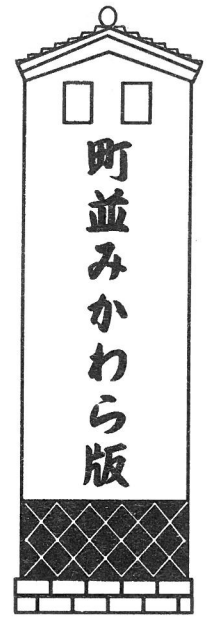 町並みかわら版